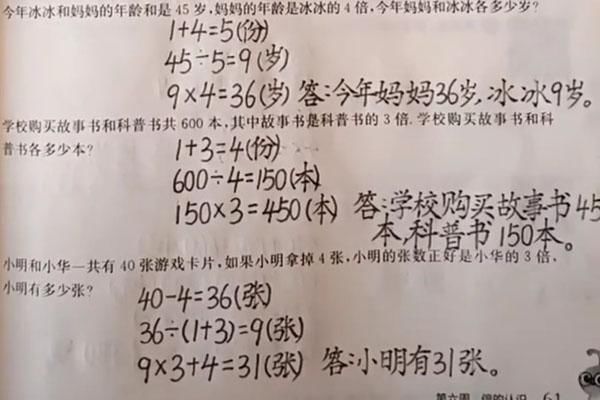 今年冰冰和妈妈的年龄和是 45 岁,妈妈的年龄是冰冰的 4 倍,今年妈妈和冰冰各多少岁?
1+4=5(份)
45÷5=9(岁)
9×4=36(岁) 答:今年妈妈36岁,冰冰9岁。
学校购买故事书和科普书共 600 本,其中故事书是科普书的 3 倍. 学校购买故事书和科
普书各多少本?
1+3=4(份)
600÷4=150(本)
150×3=450(本) 答:学校购买故事书45
本,科普书150本。
小明和小华一共有 40 张游戏卡片,如果小明拿掉 4 张,小明的张数正好是小华的 3 倍,
小明有多少张?
40-4=36(张)
36÷(1+3)=9(张)
9×3+4=31(张) 答:小明有31张。
第六周 倍的认识 61